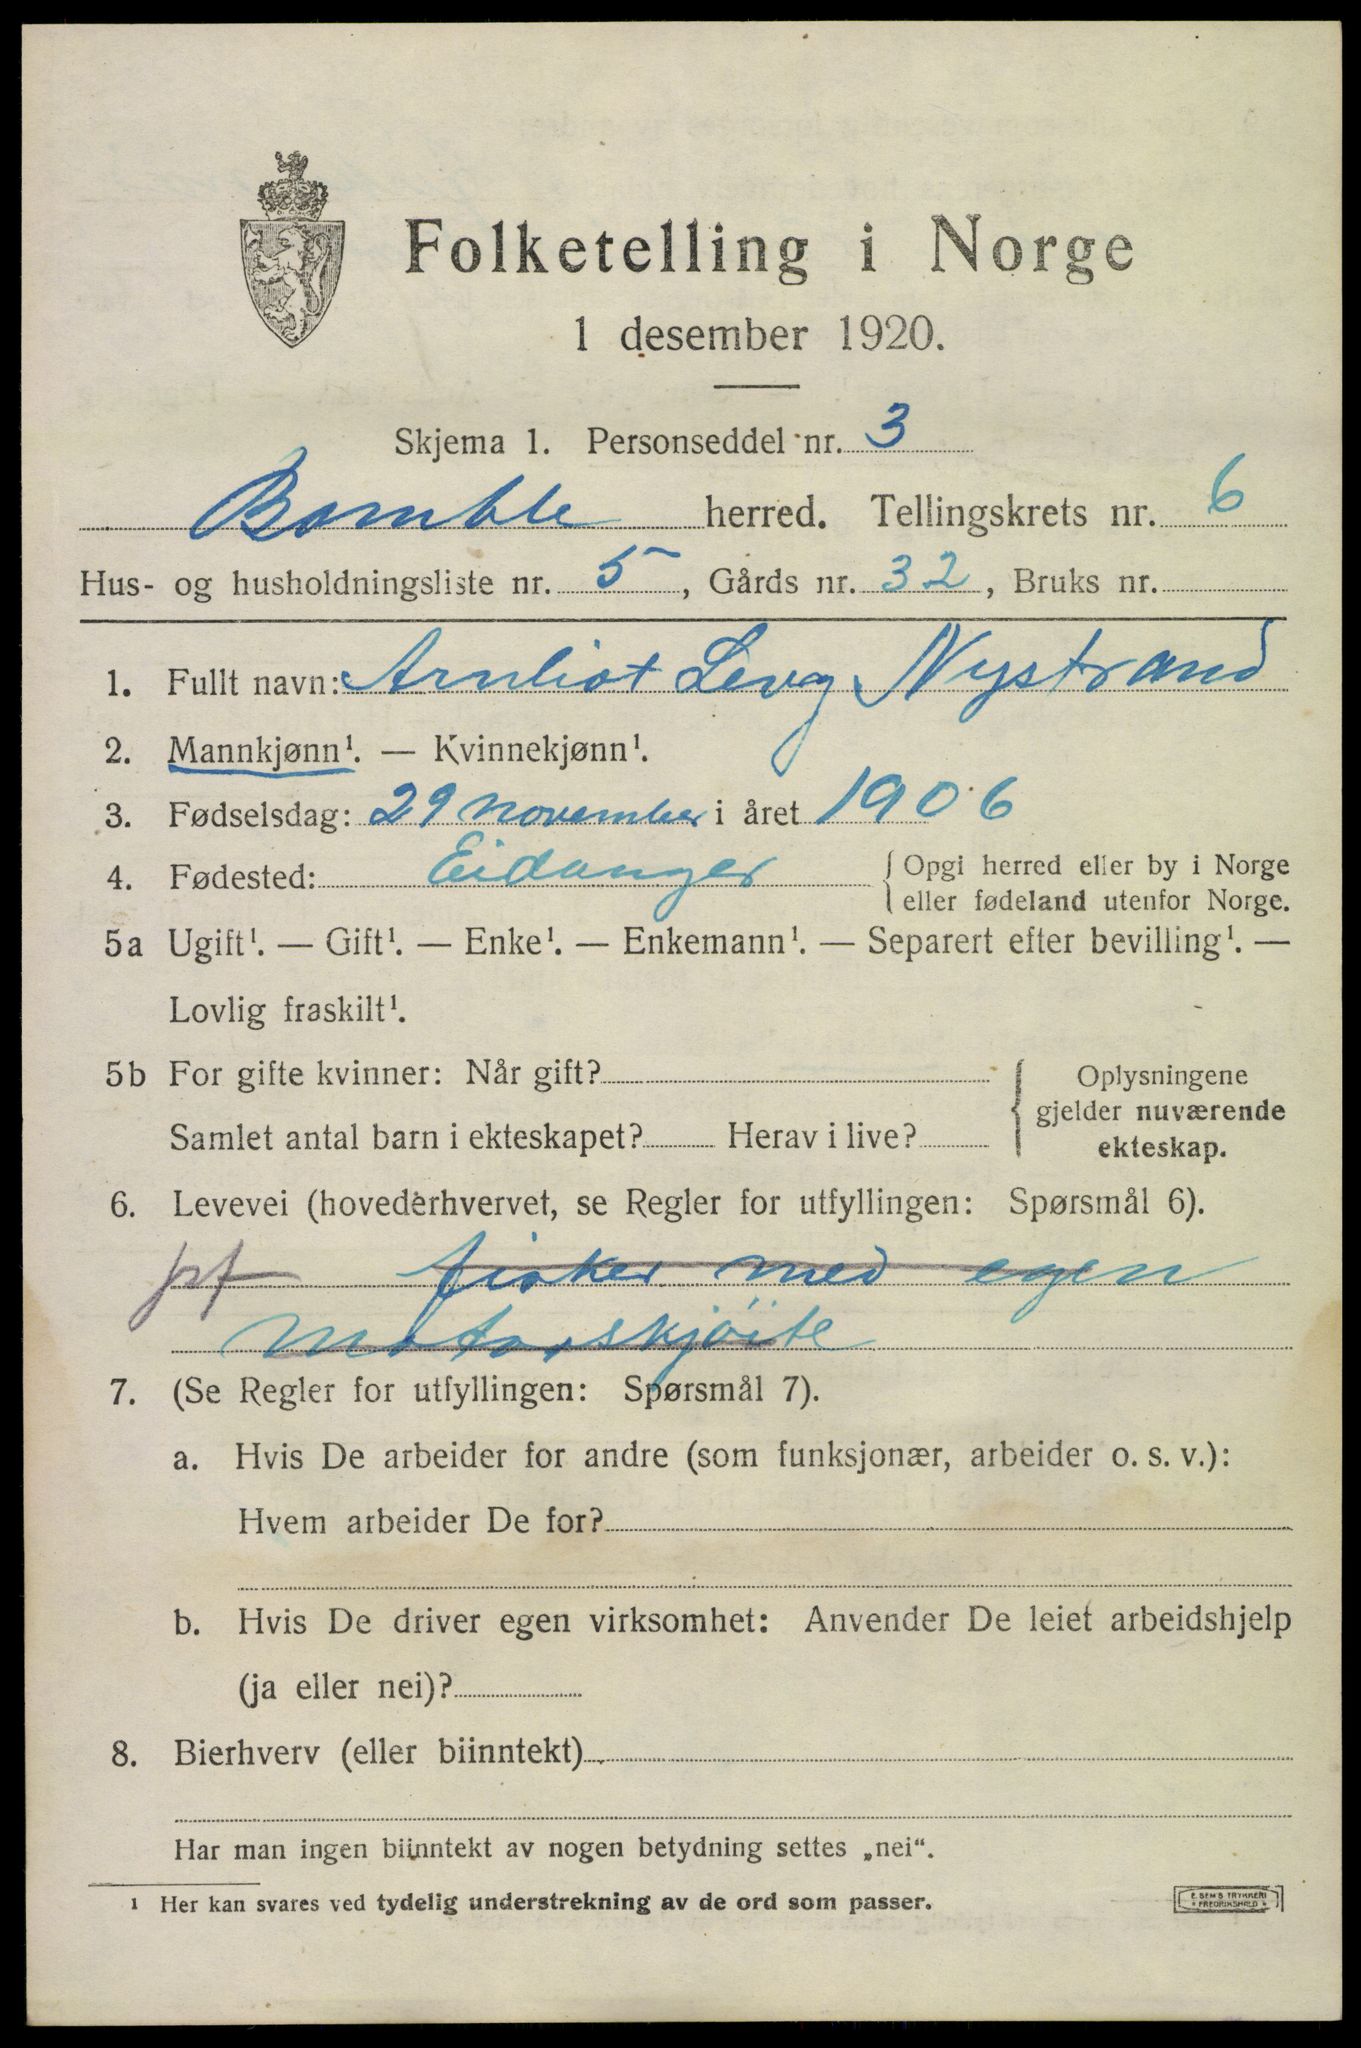 Folketelling i Norge
1 desember 1920.
Skjema 1. Personseddel nr. 3
Bamble herred. Tellingskrets nr. 6
Hus- og husholdningsliste nr. 5, Gårds nr. 32, Bruks nr.
1. Fullt navn: Arnliot Levy Nystrand
2. Mannkjønn¹. — Kvinnekjønn¹.
3. Fødselsdag: 29 november i året 1906
4. Fødested: Eidanger { Opgi herred eller by i Norge
eller fødeland utenfor Norge.
5a Ugift¹. — Gift¹. — Enke¹. — Enkemann¹. — Separert efter bevilling¹. —
Lovlig fraskilt¹.
5b For gifte kvinner: Når gift?
Samlet antal barn i ekteskapet? Herav i live?
{ Oplysningene
gjelder nuværende
ekteskap.
6. Levevei (hovederhvervet, se Regler for utfyllingen: Spørsmål 6).
pf fisker med egen
motorskjøite
7. (Se Regler for utfyllingen: Spørsmål 7).
a. Hvis De arbeider for andre (som funksjonær, arbeider o. s. v.):
Hvem arbeider De for?
b. Hvis De driver egen virksomhet: Anvender De leiet arbeidshjelp
(ja eller nei)?
8. Bierhverv (eller biinntekt)
Har man ingen biinntekt av nogen betydning settes „nei".
¹ Her kan svares ved tydelig understrekning av de ord som passer.
E. SEM'S TRYKKERI
FREDRIKSHALD